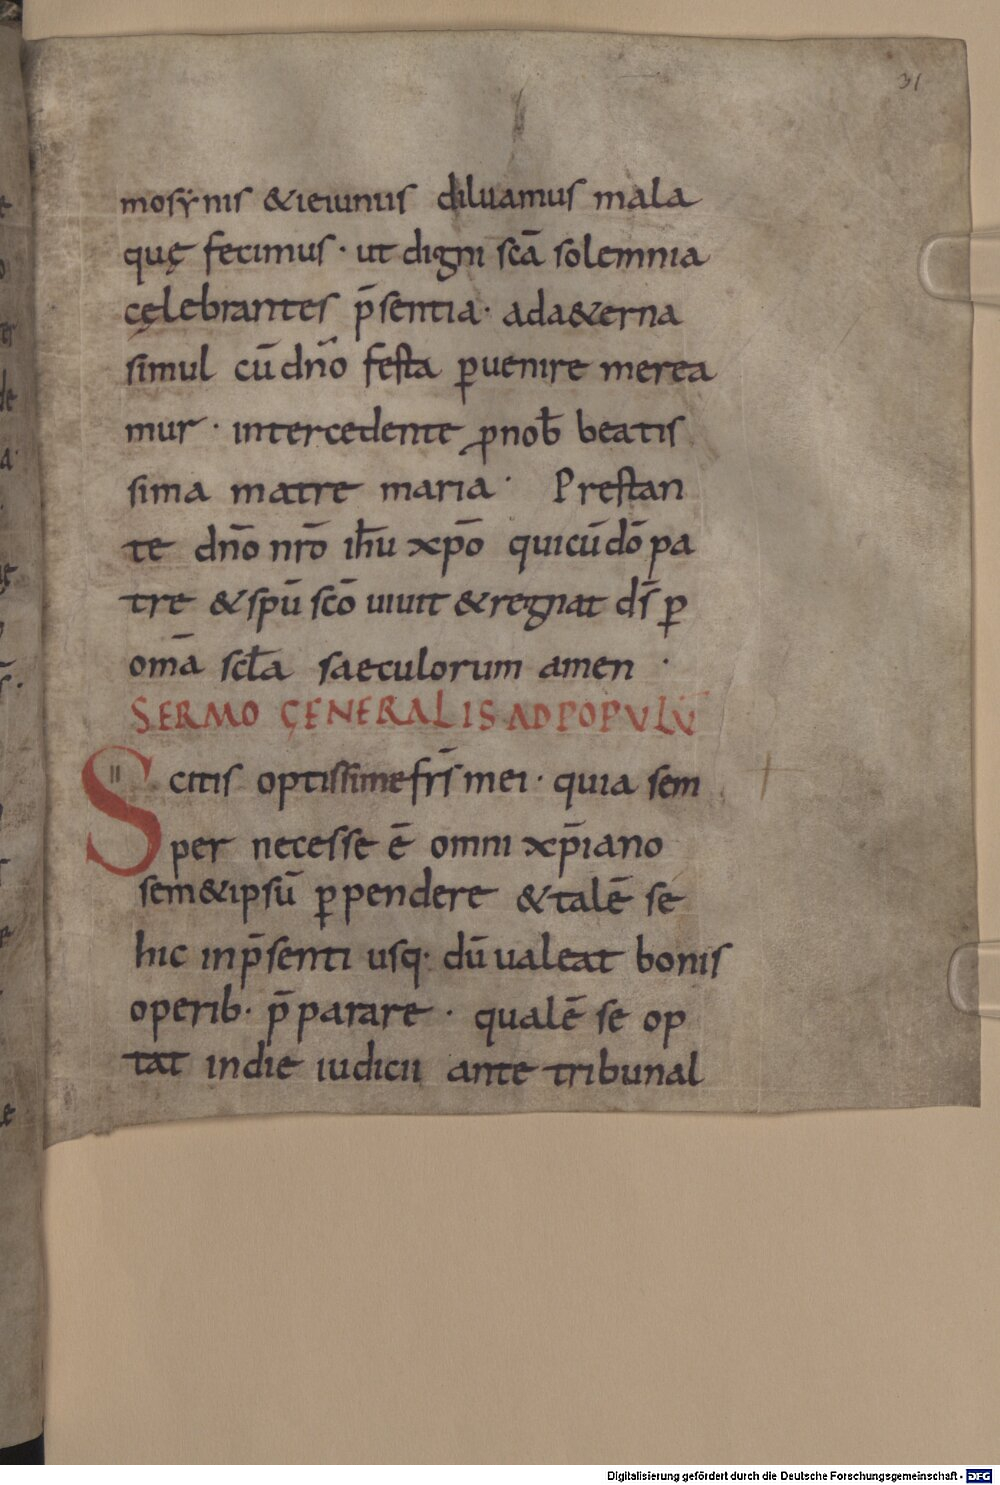 31
mosẏnis &ieiuniis diluamus mala
quę fecimus · ut digni scā solemnia
cęlebrantes p̄sentia · ada&erna
simul cū dño festa ꝑuenire merea
mur · intercedente ꝓnob̄ beatis
sima matre maria · Prestan
te dño nr̄o ih̄u xp̄o quicūdō pa
tre &spū scō uiuit &regnat ds̄ ꝑ
omā scl̄a saeculorum amen ·
SERMO GENERALIS ADPOPULŪ
Scitis optissime frs̄ mei · quia sem
per necesse ē omni xp̄iano
sem&ipsū ꝑpendere &talē se
hic inp̄senti usq· dū ualeat bonis
operib· p̄parare · qualē se op
tat indie iudicii ante tribunal
Digitalisierung gefördert durch die Deutsche Forschungsgemeinschaft - DFG